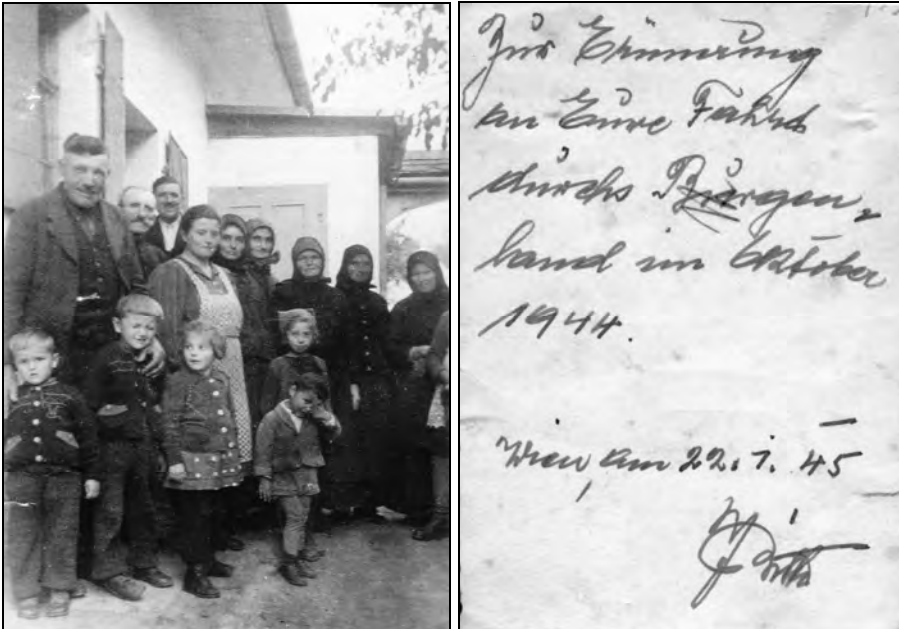 Zur Erinnerung
an Eure Fahrt
durchs Burgen-
land im Oktober
1944.
Wien, am 22. 1. 45